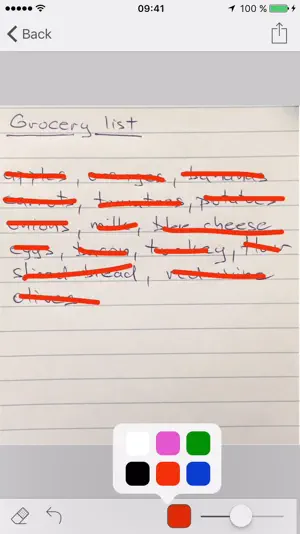 09:41
100 %
Back
Grocery list
apples, oranges, bananas
carrot, tomatoes, potatoes
onions, milk, blue cheese
eggs, bacon, turkey, flour
sliced bread, red wine
olives